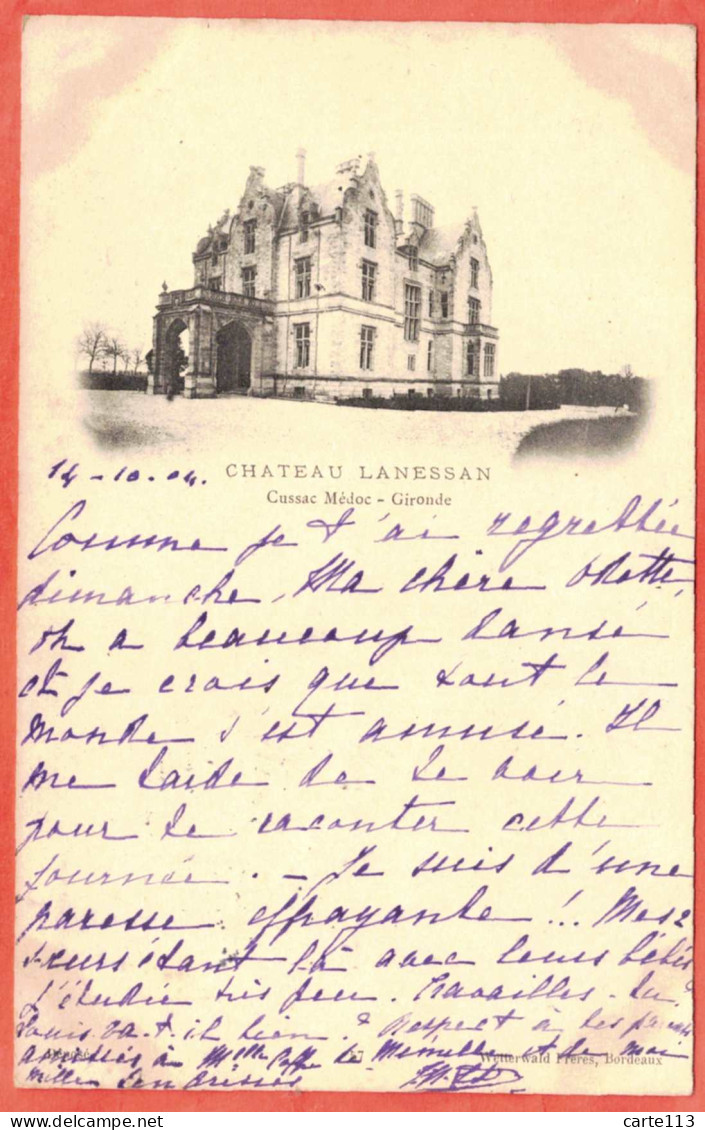 CHATEAU LANESSAN
14-10-04.
Cussac Médoc - Gironde
Comme je t'ai regrettée
dimanche, Ma chère Odette,
on a beaucoup dansé
et je crois que tout le
monde s'est amusé. Il
me tarde de te voir
pour te raconter cette
journée. - Je suis d'une
paresse effrayante !! Mes 2
sœurs étant là avec leurs bébés
j'étudie très peu. Travailles-tu ?
Louis va-t-il bien ? Respect à tes parents
à Melle de et de moi
mille tendresses
Wetterwald Frères, Bordeaux
carte113